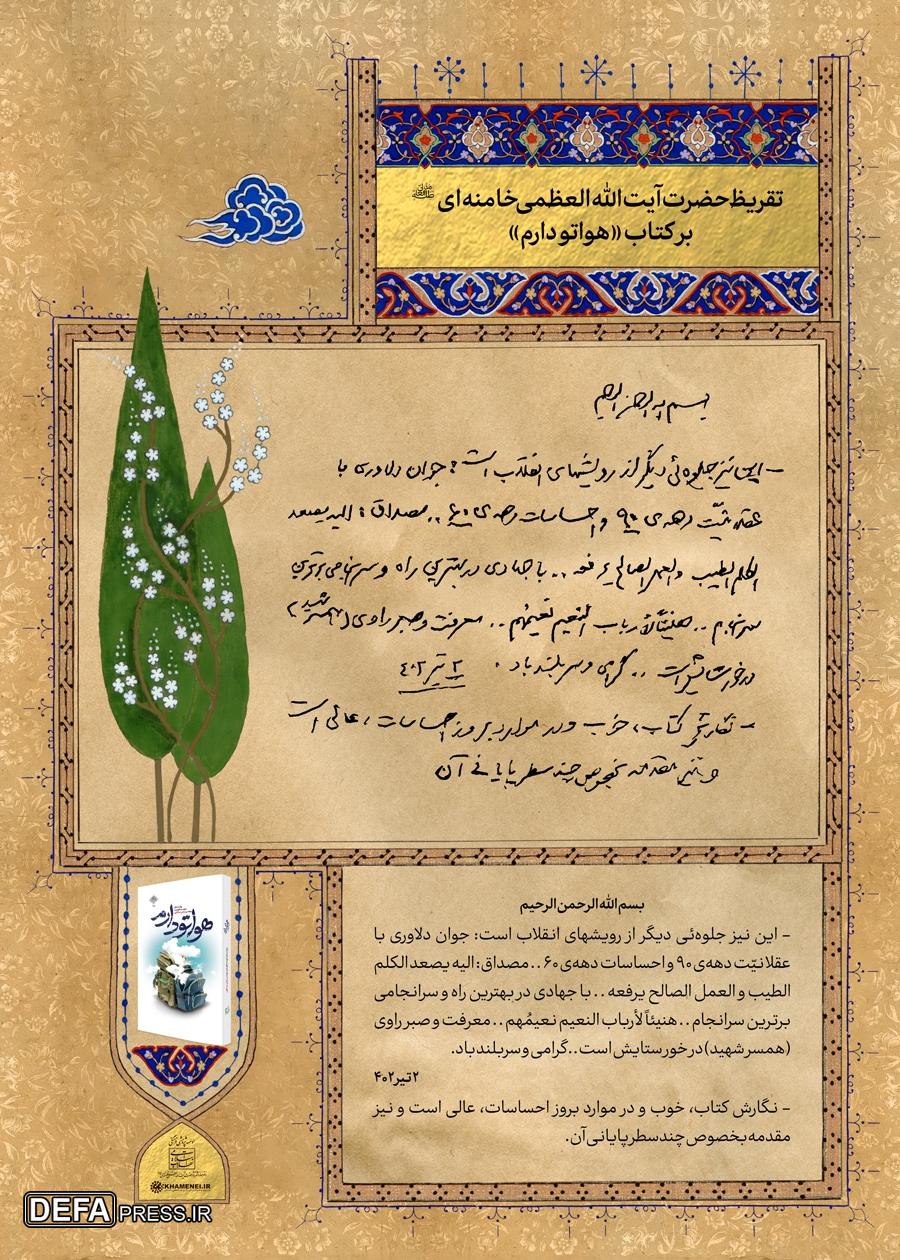 تقریظ حضرت آیت الله العظمی خامنه ای
بر کتاب «هواتو دارم»
بسم الله الرحمن الرحیم
- این نیز جلوه‌ئی دیگر از رویشهای انقلاب است: جوان دلاوری با
عقلانیّت دهه‌ی ۹۰ و احساسات دهه‌ی ۶۰ .. مصداق: الیه یصعد
الکلم الطیب و العمل الصالح یرفعه .. با جهادی در بهترین راه و سرانجامی برترین
سرانجام .. هنیئاً لأرباب النعیم نعیمُهم .. معرفت و صبر راوی (همسر شهید)
در خور ستایش است .. گرامی و سربلند باد.
۲ تیر ۴۰۲
- نگارش کتاب، خوب و در موارد بروز احساسات، عالی است
و نیز مقدمه بخصوص چند سطر پایانی آن
هواتو دارم
بسم الله الرحمن الرحیم
- این نیز جلوه‌ئی دیگر از رویشهای انقلاب است: جوان دلاوری با
عقلانیّت دهه‌ی ۹۰ و احساسات دهه‌ی ۶۰ .. مصداق: الیه یصعد الکلم
الطیب و العمل الصالح یرفعه .. با جهادی در بهترین راه و سرانجامی
برترین سرانجام .. هنیئاً لأرباب النعیم نعیمُهم .. معرفت و صبر راوی
(همسر شهید) در خور ستایش است .. گرامی و سربلند باد.
۲ تیر ۴۰۲
- نگارش کتاب، خوب و در موارد بروز احساسات، عالی است و نیز
مقدمه بخصوص چند سطر پایانی آن.
KHAMENEI.IR
DEFA PRESS.IR